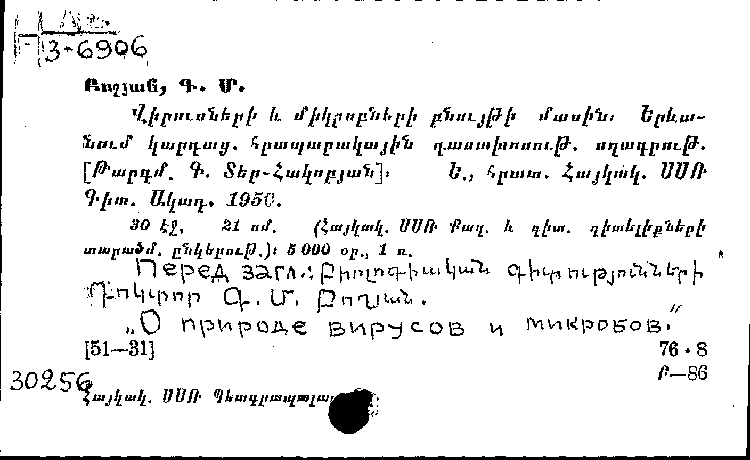 3-6906
Բոշյան, Գ. Մ.
Վիրուսների և միկրոբների բնույթի մասին։ Երևա-
նում կարդաց. հրապարակային դասախոսութ. սղագրութ.
[Թարգմ. Գ. Տեր-Հակոբյան]։ Ե., հրատ. Հայկակ. ՍՍՌ
Գիտ. Ակադ. 1950.
30 էջ, 21 սմ. (Հայկակ. ՍՍՌ Քաղ. և գիտ. գիտելիքների
տարածմ. ընկերութ.)։ 5 000 օր., 1 ռ.
Перед загл.: Բիոլոգիական գիտությունների
Դոկտոր Գ. Մ. Բոշյան.
„О природе вирусов и микробов."
[51—31] 76 · 8
Բ—86
30256
Հայկակ. ՍՍՌ Պետգրապալատ